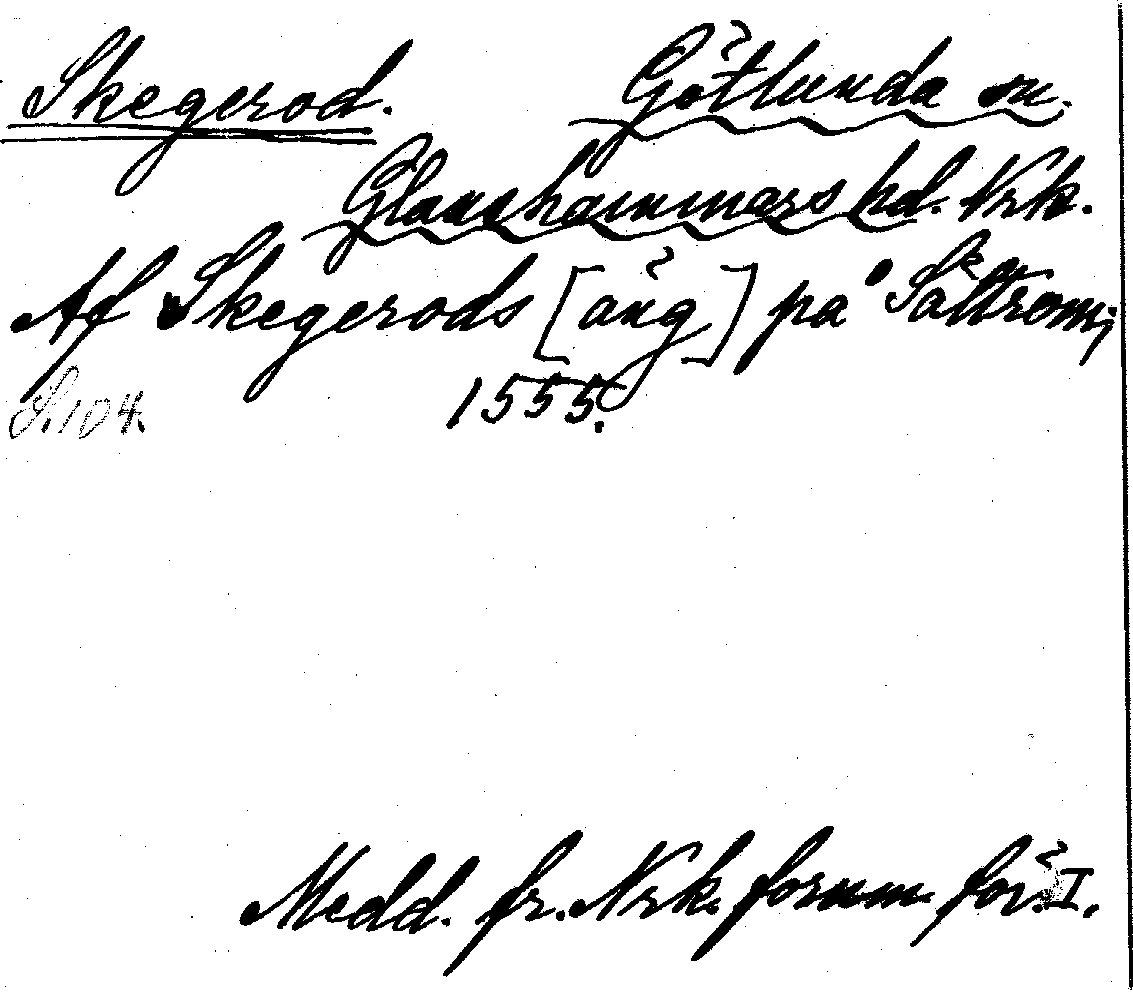 Skegerod. Götlunda sn.
Glanshammars hd. Nrk.
Af Skegerods [äng] på Sättrom;
S. 104. 1555.
Medd. fr. Nrk. fornm. för. I.